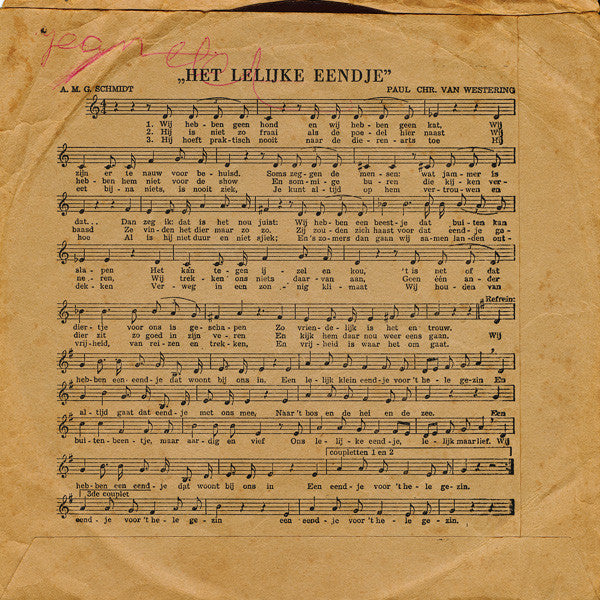 jeannette
„HET LELIJKE EENDJE”
A. M. G. SCHMIDT PAUL CHR. VAN WESTERING
1. Wij heb - ben geen hond en wij heb - ben geen kat, Wij
2. Hij is niet zo fraai als de poe - del hier naast Wij
3. Hij hoeft prak - tisch nooit naar de die - ren - arts toe Hij
zijn er te nauw voor be - huisd. Soms zeg - gen de men - sen: wat jam - mer is
kan hem niet voor de show En som - mi - ge bu - ren die kij - ken ver -
eet bij - na niets, is nooit ziek, Je kunt al - tijd op hem ver - trou - wen en
dat... Dan zeg ik dat is het nou juist: Wij heb - ben een beest - je dat bui - ten kan
baasd Ze vin - den het dier maar zo zo. Zij zou - den zich haast voor dat eend - je ge -
hoe Al is hij niet duur en niet sjiek; En 's zo - mers dan gaan wij sa - men lan - den out -
sla - pen Het kan te - gen ij - zel en kou, 't is net of dat
ne - ren, Wij trek - ken ons niets daar - van aan, Geen één an - der
dek - ken Ver - weg in een zon - nig kli - maat Wij hou - den van
Refrein:
dier - tje voor ons is ge - scha - pen Zo vrien - de - lijk is het en trouw.
dier zit zo goed in zijn ve - ren En kijk hem daar nou weer eens gaan. Wij
vrij - heid, van rei - zen en trek - ken, En vrij - heid is waar het om gaat.
heb - ben een eend - je dat woont bij ons in. Een le - lijk klein eend - je voor 't he - le ge - zin En
al - tijd gaat dat eend - je met ons mee, Naar 't bos en de hei en de zee. Een
bui - ten - been - tje, maar aar - dig en vief Ons le - lij - ke eend - je, le - lijk maar lief. Wij
coupletten 1 en 2
heb - ben een eend - je dat woont bij ons in Een eend - je voor 't he - le ge - zin.
3de couplet
eend - je voor 't he - le ge - zin een eend - je voor 't he - le ge - zin.